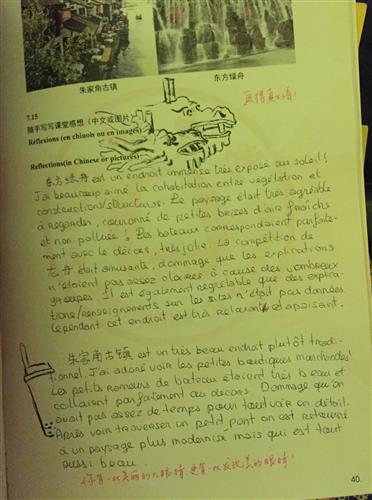 朱家角古镇
东方绿舟
画得真好看!
7.15
随手写写课堂感想(中文或图片)
Réflexions (en chinois ou en images)
Reflections(in Chinese or pictures)
东方绿舟 est un endroit immense très exposé au soleil!
J'ai beaucoup aimé la cohabitation entre végétation et
constructions/structures. Le paysage était très agréable
à regarder, couronné de petites brises d'air fraiche
et non polluée! Les bateaux correspondaient parfaite-
ment avec le décors, très jolie. La compétition de
龙舟 était amusante, dommage que les explications
n'étaient pas assez claires à cause des nombreux
groupes. Il est également regrettable que des explica-
tions/renseignements sur les sites n'était pas données.
Cependant cet endroit est très relaxant et apaisant.
朱家角古镇 est un très beau endroit plutôt tradi-
tionnel. J'ai adoré voir les petites boutiques marchandes!
Les petits rameurs de bateau étaient très beau et
collaient parfaitement au décors. Dommage qu'on
avait pas assez de temps pour tout voir en détail.
Après voir traverser un petit pont on est retourné
à un paysage plus modernise mais qui est tout
aussi beau.
你有一双美丽的大眼睛,更有一双发现美的眼睛!
40.